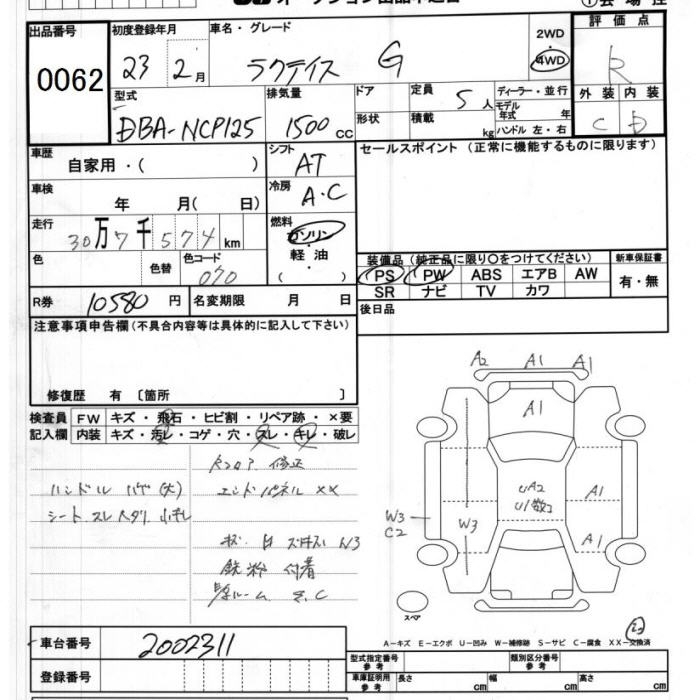 出品番号
0062
初度登録年月
23 2月
車名・グレード
ラクティス G
2WD
4WD
評価点
R
外装 内装
C D
型式
DBA-NCP125
排気量
1500 cc
ドア
形状
定員
5人
積載
kg
ディーラー・並行
モデル
年式 年
ハンドル 左・右
車歴
自家用・( )
シフト
AT
セールスポイント (正常に機能するものに限ります)
車検
年 月( 日)
冷房
A・C
走行
30万7千574km
燃料
ガソリン
軽油
( )
色
色替
色コード
070
装備品(純正品に限り〇をつけてください)
PS PW ABS エアB AW
SR ナビ TV カワ
新車保証書
有・無
R券
10580 円
名変期限 月 日
後日品
注意事項申告欄(不具合内容等は具体的に記入して下さい)
修復歴 有 〔箇所 〕
検査員
記入欄
FW キズ・飛石・ヒビ割・リペア跡・×要
内装 キズ・汚レ・コゲ・穴・スレ・キレ・破レ
修正
ハンドル ハゲ(大)
エンドパネル XX
シート スレ ヘタリ
W3
鉄粉 付着
ルーム S.C
A2 A1 A1
A1
UA2
U1数コ
A1
A1
W3
W3
C2
スペア
A-キズ E-エクボ U-凹み W-補修跡 S-サビ C-腐食 XX-交換済
車台番号
2002311
登録番号
型式指定番号
参考
類別区分番号
参考
車庫証明用
参考
長さ cm
幅 cm
高さ cm